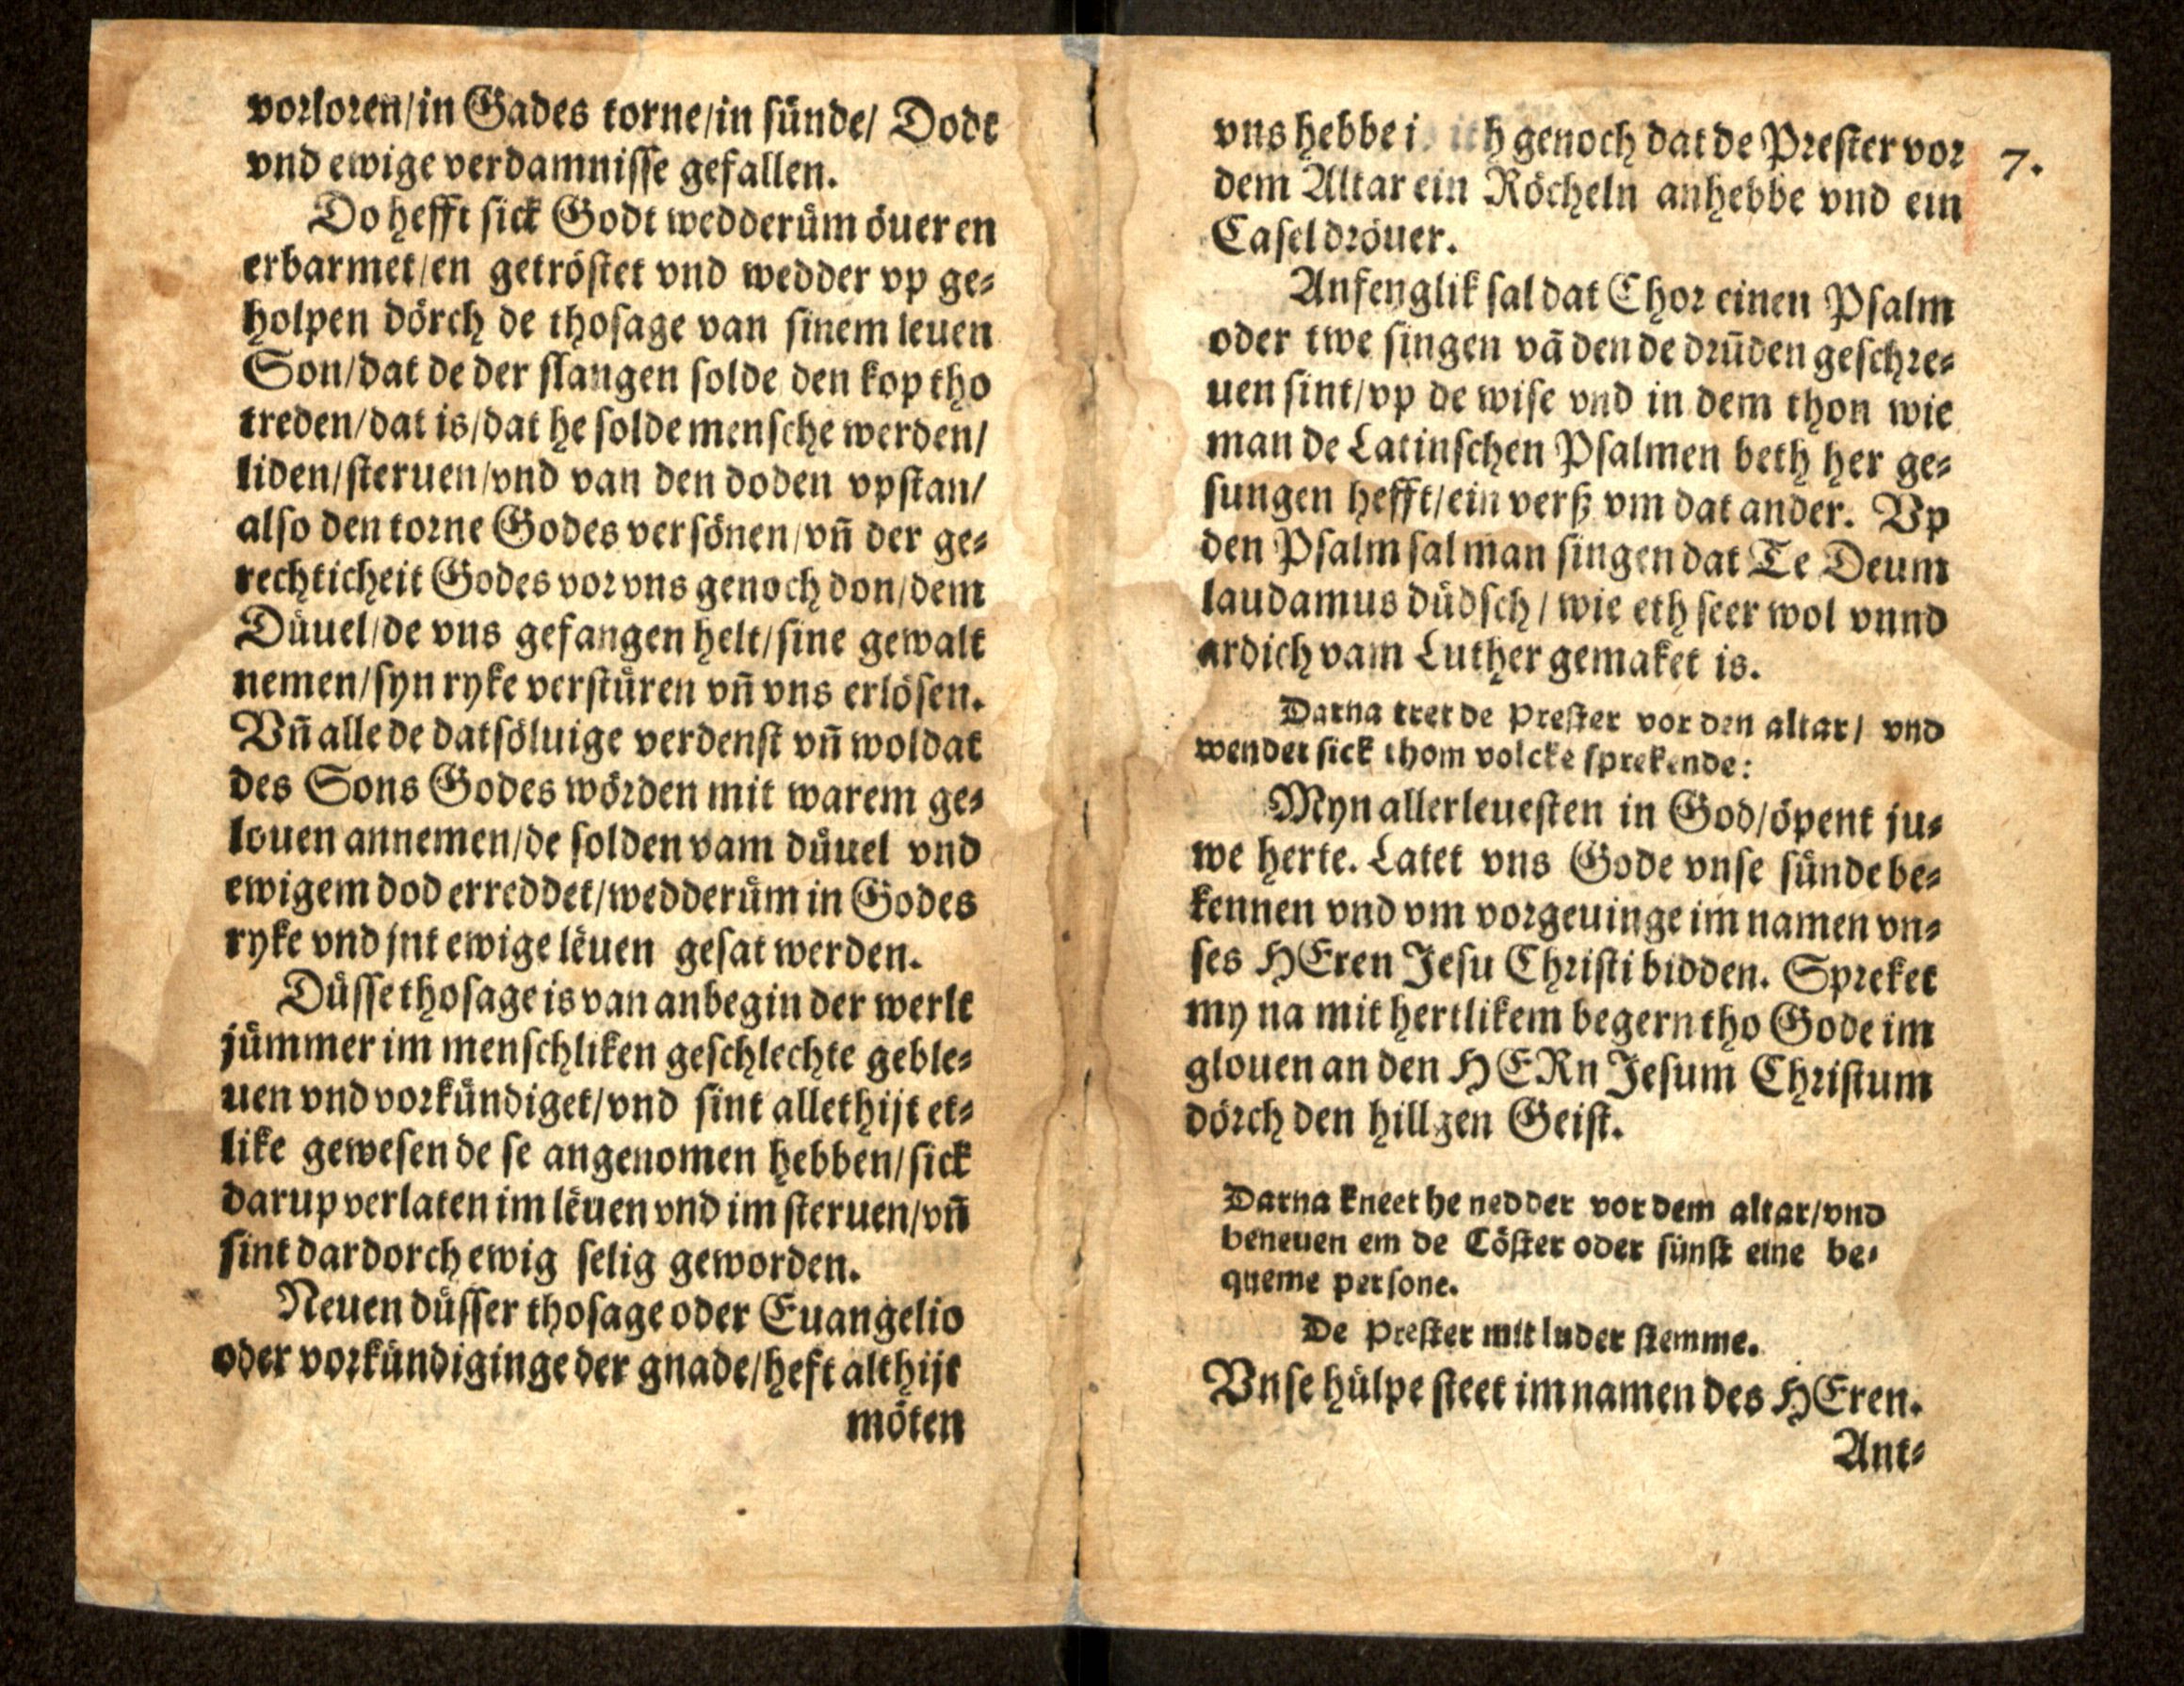 vorloren/in Gades torne/in sünde/ Dodt
vnd ewige verdamnisse gefallen.
Do hefft sick Godt wedderüm öuer en
erbarmet/en getröstet vnd wedder vp ge⸗
holpen dörch de thosage van sinem leuen
Son/dat de der slangen solde den kop tho
treden/dat is/dat he solde mensche werden/
liden/steruen/vnd van den doden vpstan/
also den torne Godes versönen/vñ der ge⸗
rechticheit Godes vor vns genoch don/dem
Düuel/de vns gefangen helt/sine gewalt
nemen/syn ryke verstüren vñ vns erlösen.
Vñ alle de datsöluige verdenst vñ woldat
des Sons Godes wörden mit warem ge⸗
louen annemen/de solden vam düuel vnd
ewigem dod erreddet/wedderüm in Godes
ryke vnd jnt ewige lëuen gesat werden.
Düsse thosage is van anbegin der werlt
jümmer im menschliken geschlechte geble⸗
uen vnd vorkündiget/vnd sint allethijt et⸗
like gewesen de se angenomen hebben/sick
darup verlaten im lëuen vnd im steruen/vñ
sint dardorch ewig selig geworden.
Neuen düsser thosage oder Euangelio
oder vorkündiginge der gnade/heft althijt
möten
vns hebbe genoch dat de Prester vor
7.
dem Altar ein Röcheln anhebbe vnd ein
Casel dröuer.
Anfenglik sal dat Chor einen Psalm
oder twe singen vã den de drüden geschre⸗
uen sint/vp de wise vnd in dem thon wie
man de Latinschen Psalmen beth her ge⸗
sungen hefft/ein verß vm dat ander. Vp
den Psalm sal man singen dat Te Deum
laudamus düdsch/ wie eth seer wol vnnd
ardich vam Luther gemaket is.
Darna tret de Prester vor den altar/ vnd
wendet sick thom volcke sprekende:
Myn allerleuesten in God/öpent ju⸗
we herte. Latet vns Gode vnse sünde be⸗
kennen vnd vm vorgeuinge im namen vn⸗
ses HEren Jesu Christi bidden. Spreket
my na mit hertlikem begern tho Gode im
glouen an den HERn Jesum Christum
dörch den hillgen Geist.
Darna kneet he nedder vor dem altar/vnd
beneuen em de Cöster oder sünst eine be⸗
queme persone.
De Prester mit luder stemme.
Vnse hülpe steet im namen des HEren.
Ant⸗